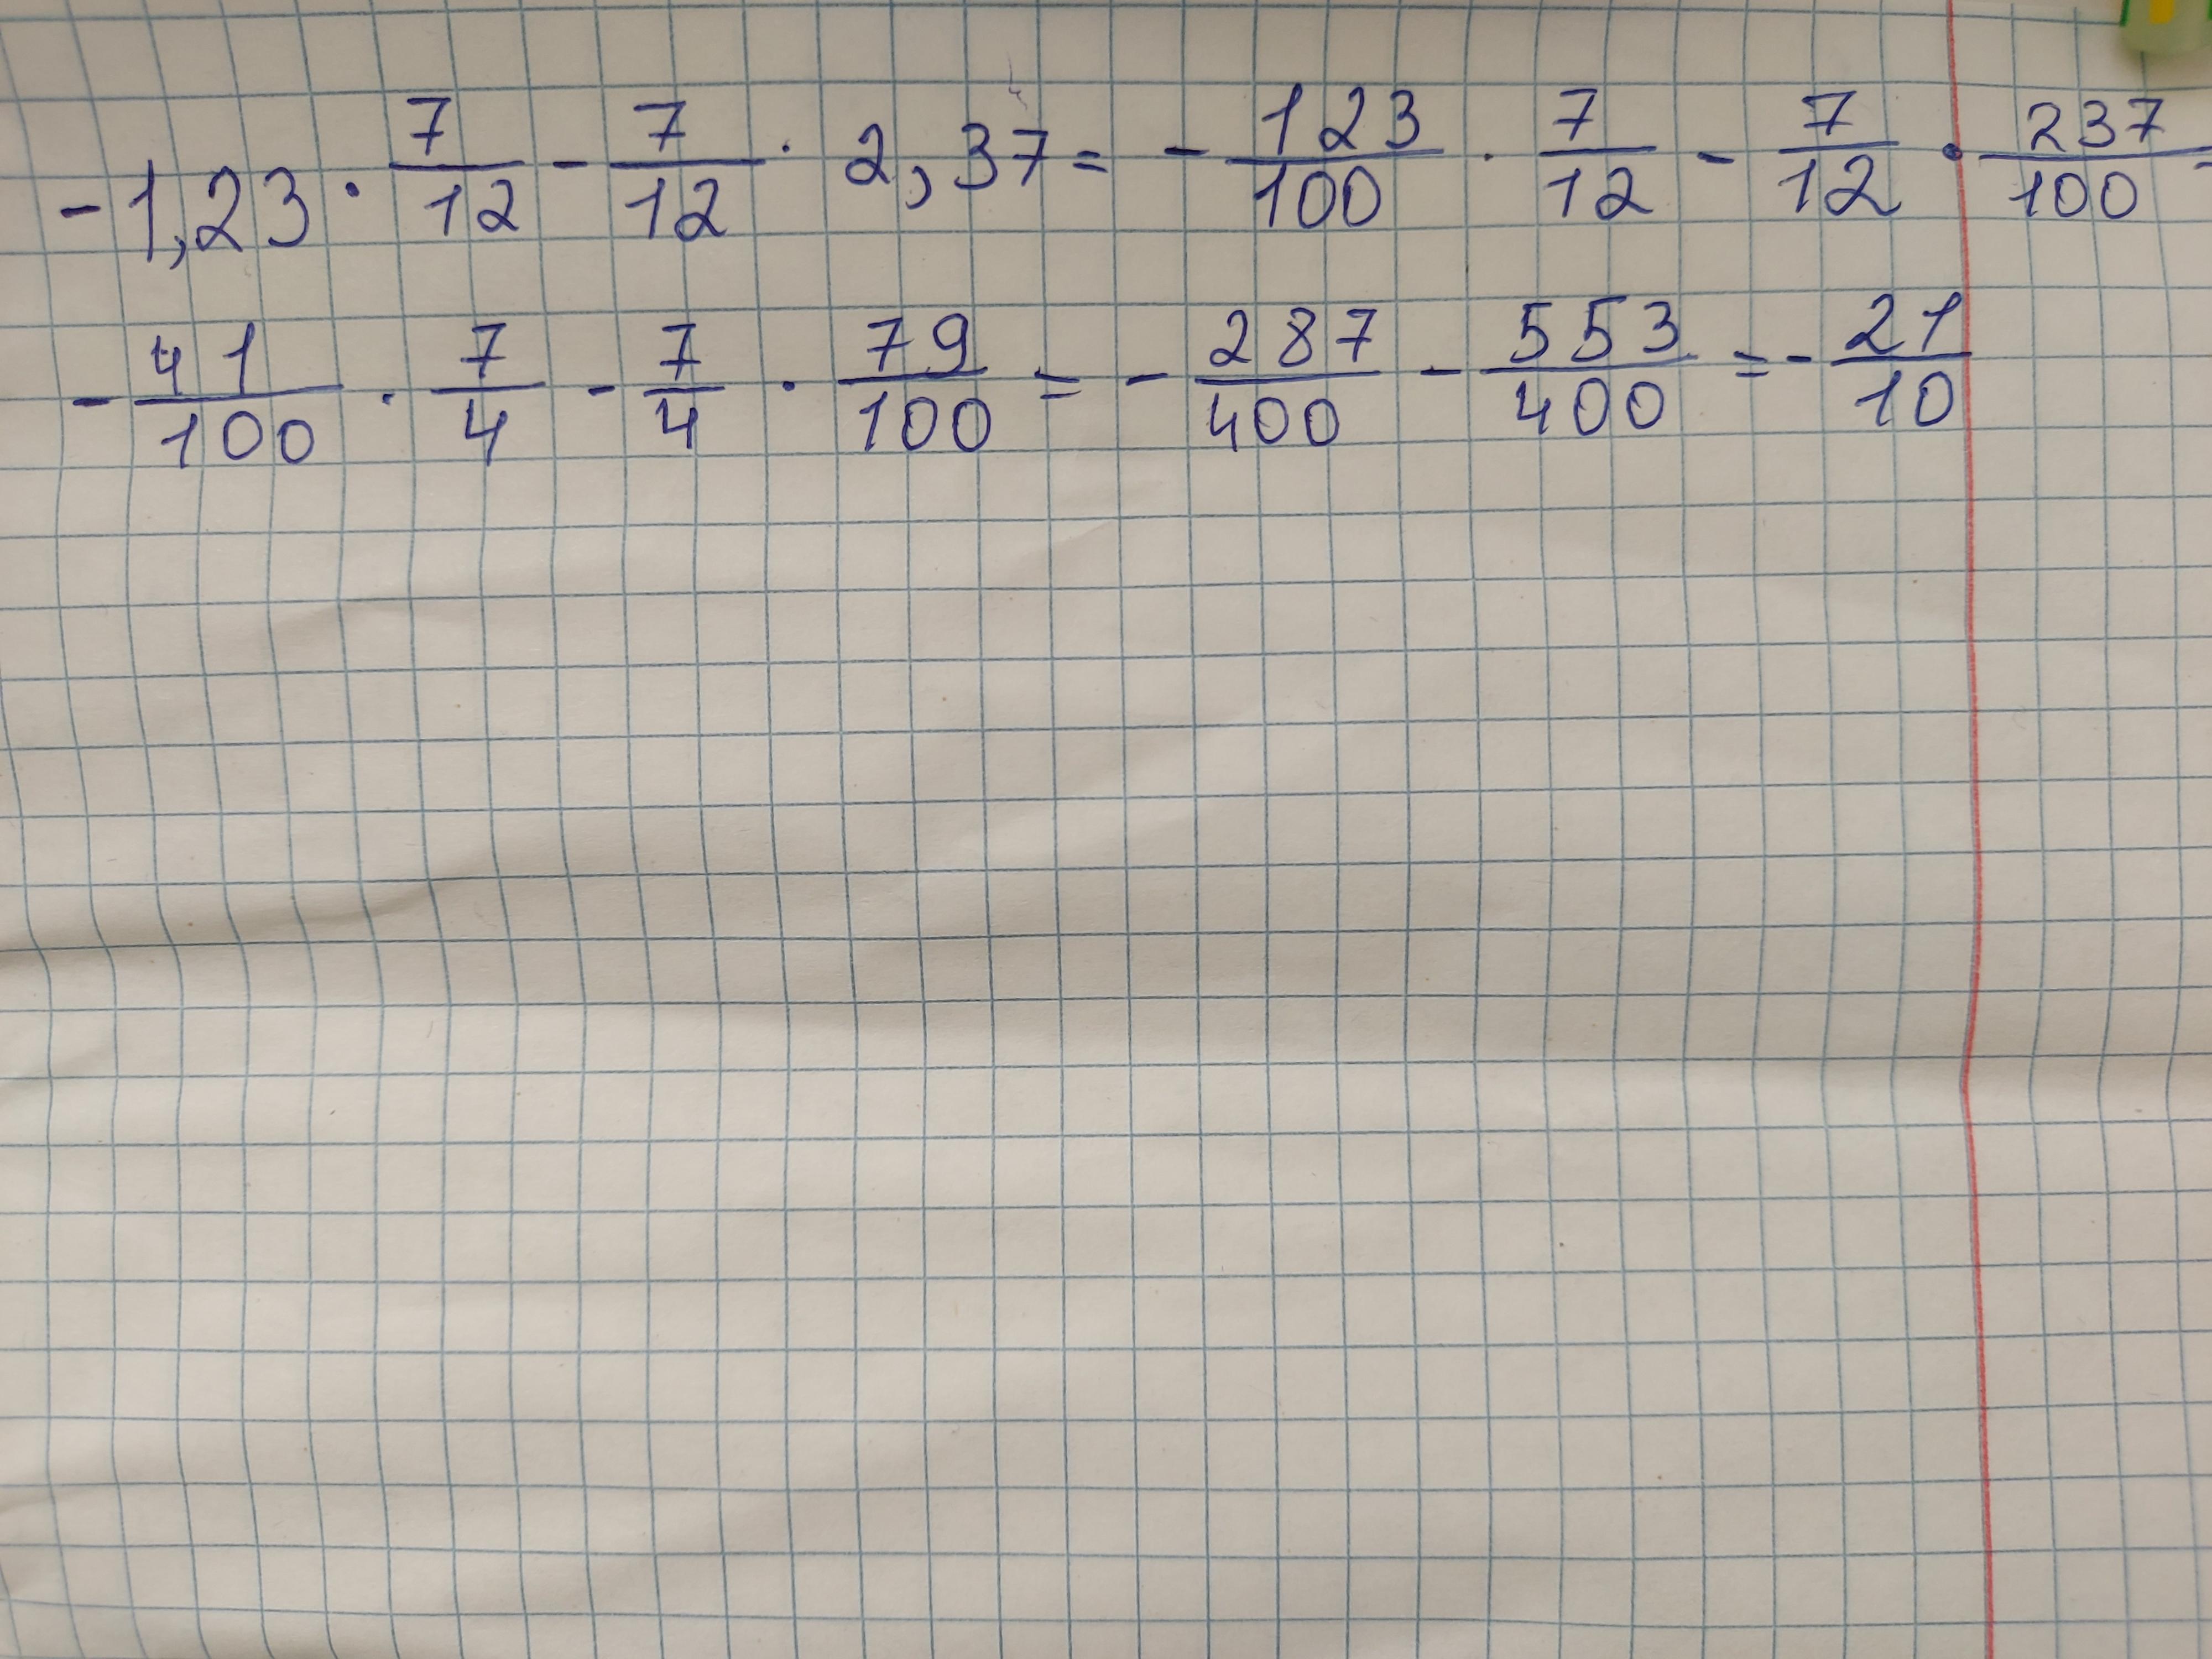 -1,23 · 7/12 - 7/12 · 2,37 = - 123/100 · 7/12 - 7/12 · 237/100 =
- 41/100 · 7/4 - 7/4 · 79/100 = - 287/400 - 553/400 = - 21/10